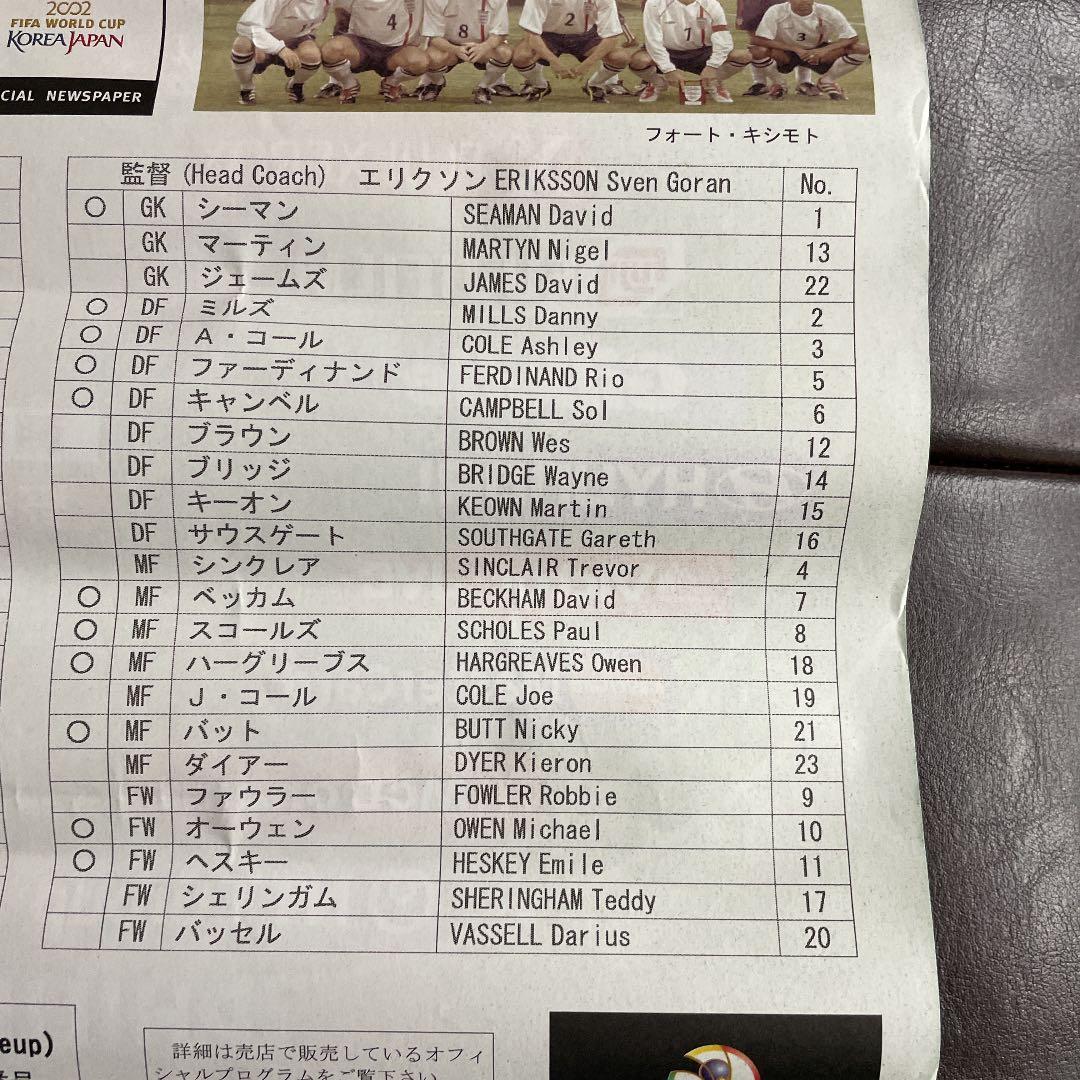 2002
FIFA WORLD CUP
KOREA JAPAN
CIAL NEWSPAPER
4 8 2 7 3
フォート・キシモト
監督 (Head Coach) エリクソン ERIKSSON Sven Goran No.
○ GK シーマン SEAMAN David 1
GK マーティン MARTYN Nigel 13
GK ジェームズ JAMES David 22
○ DF ミルズ MILLS Danny 2
○ DF A・コール COLE Ashley 3
○ DF ファーディナンド FERDINAND Rio 5
○ DF キャンベル CAMPBELL Sol 6
DF ブラウン BROWN Wes 12
DF ブリッジ BRIDGE Wayne 14
DF キーオン KEOWN Martin 15
DF サウスゲート SOUTHGATE Gareth 16
MF シンクレア SINCLAIR Trevor 4
○ MF ベッカム BECKHAM David 7
○ MF スコールズ SCHOLES Paul 8
○ MF ハーグリーブス HARGREAVES Owen 18
MF J・コール COLE Joe 19
○ MF バット BUTT Nicky 21
MF ダイアー DYER Kieron 23
FW ファウラー FOWLER Robbie 9
○ FW オーウェン OWEN Michael 10
○ FW ヘスキー HESKEY Emile 11
FW シェリンガム SHERINGHAM Teddy 17
FW バッセル VASSELL Darius 20
eup)
詳細は売店で販売しているオフィ
シャルプログラムをご覧下さい